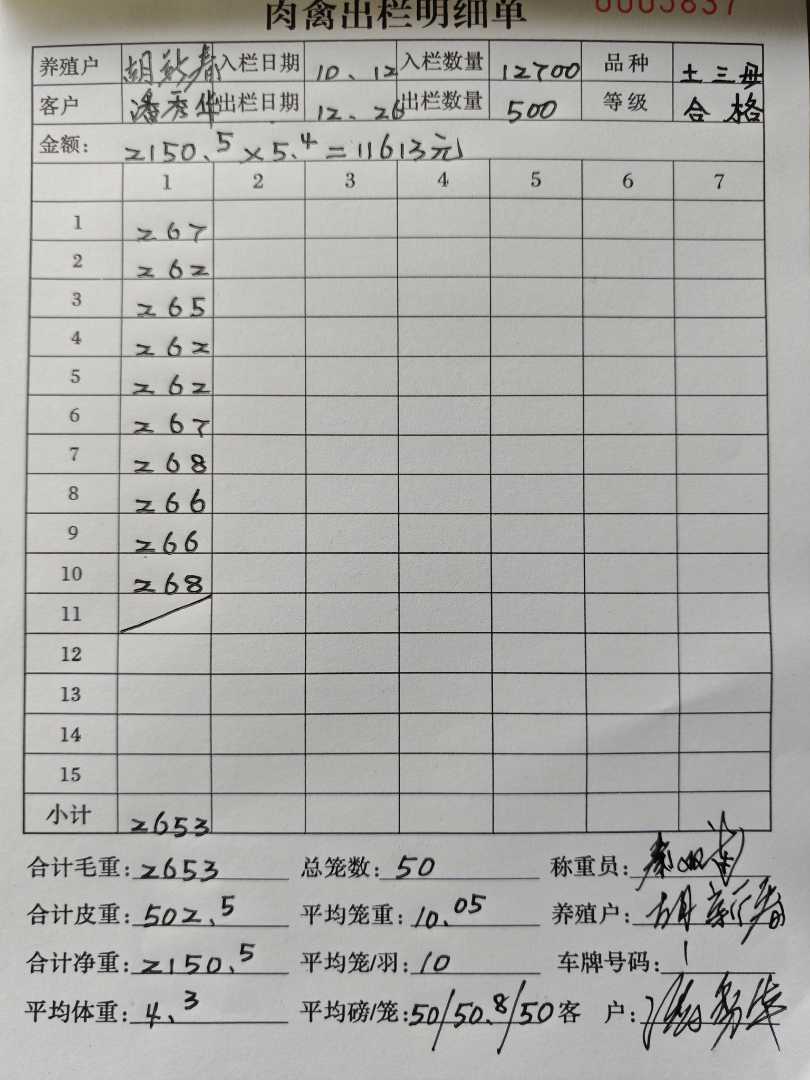 肉禽出栏明细单 0005837
养殖户 胡新春 入栏日期 10.12 入栏数量 12700 品种 土三母
客户 潘秀华 出栏日期 12.26 出栏数量 500 等级 合格
金额: 2150.5×5.4=11613元
1 2 3 4 5 6 7
1 267
2 262
3 265
4 262
5 262
6 267
7 268
8 266
9 266
10 268
11
12
13
14
15
小计 2653
合计毛重: 2653 总笼数: 50 称重员:
合计皮重: 502.5 平均笼重: 10.05 养殖户: 胡新春
合计净重: 2150.5 平均笼/羽: 10 车牌号码: 1
平均体重: 4.3 平均磅/笼: 50/50.8/50 客 户: 潘秀华